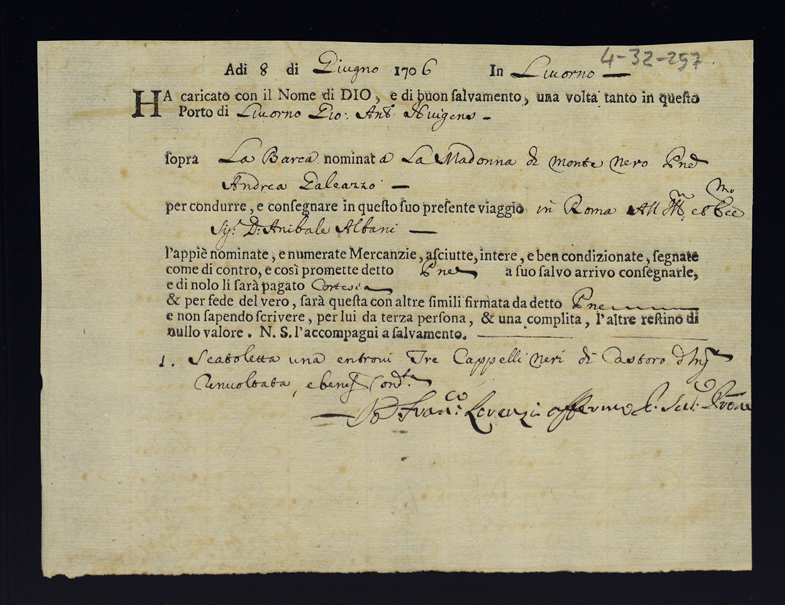 4-32-257
Adi 8 di Giugno 1706 In Livorno
HA caricato con il Nome di DIO, e di buon salvamento, una volta tanto in questo
Porto di Livorno Gio: Antº Huigens
sopra La Barca nominata La Madonna di monte nero Pne
Andrea Galeazzo
per condurre, e consegnare in questo suo presente viaggio in Roma All
Sigr D: Anibale Albani
l'appiè nominate, e numerate Mercanzie, asciutte, intere, e ben condizionate, segnate
come di contro, e così promette detto Pne a suo salvo arrivo consegnarle,
e di nolo li sarà pagato Cortesia
& per fede del vero, sarà questa con altre simili firmata da detto Pne
e non sapendo scrivere, per lui da terza persona, & una complita, l'altre restino di
nullo valore. N. S. l'accompagni a salvamento.
1. Scatoletta una entrovi Tre Cappelli neri di Castoro
e bene Condta
Io Franco: Lorenzi affermo